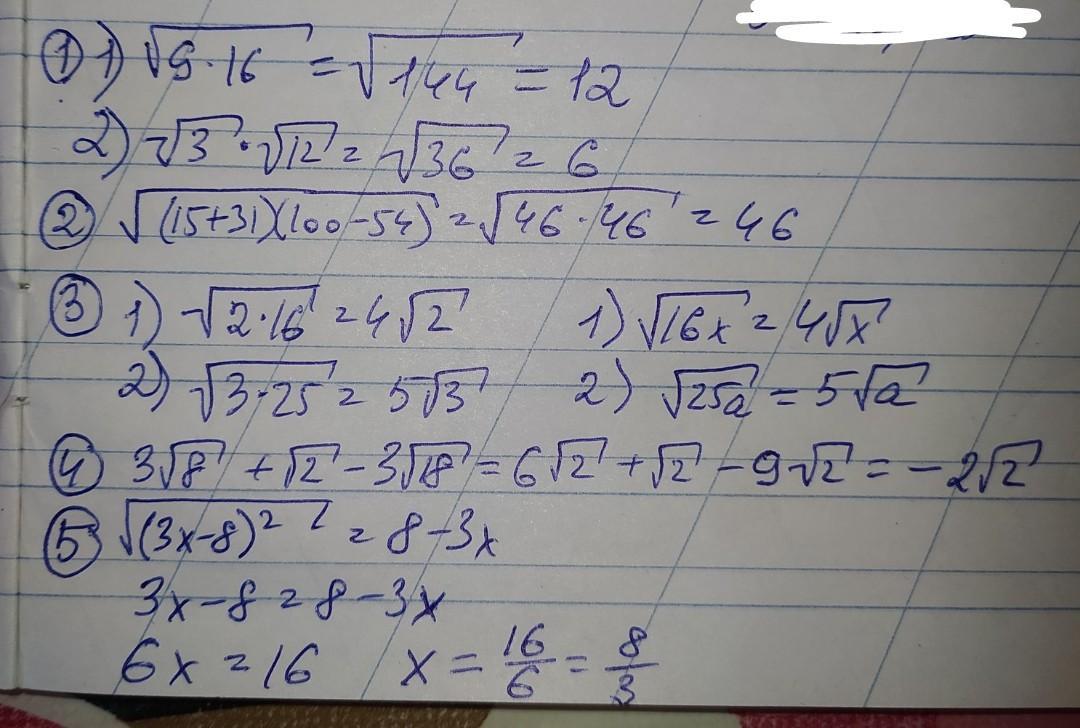 ① 1) √(9·16) = √144 = 12
2) √3 · √12 = √36 = 6
② √((15+31)(100-54)) = √(46·46) = 46
③ 1) √(2·16) = 4√2 1) √(16x) = 4√x
2) √(3·25) = 5√3 2) √(25a) = 5√a
④ 3√8 + √2 - 3√18 = 6√2 + √2 - 9√2 = -2√2
⑤ √((3x-8)²) = 8-3x
3x-8 = 8-3x
6x = 16 x = 16/6 = 8/3